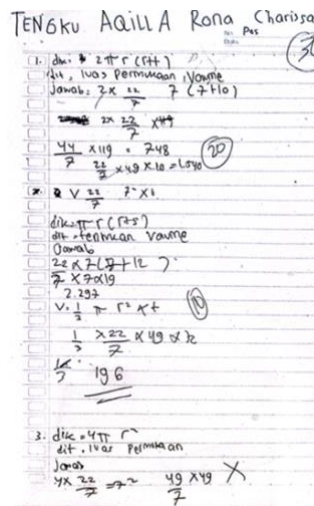 TENGKU AQILLA Rona Charissa
No.
Date.
Pas
1. dik. 2πr(r+t)
dit, luas Permukaan, Volume
Jawab: 2x 22/7 7 (7+10)
2x 22/7 x49
44/7 x119 = 748
22/7 x49 x10 = 1.540
20
V 22/7
dik. πr(r+s)
dit. tentukan Volume
Jawab
22 x7(7+12)
7 x7x19
2.297
V. 1/3 π r² xt
10
1/3 x 22/7 x 49 x 12
196
3. dik. 4π r²
dit. luas Permukaan
Jawab
4x 22/7 =7² 49/7 x49 X